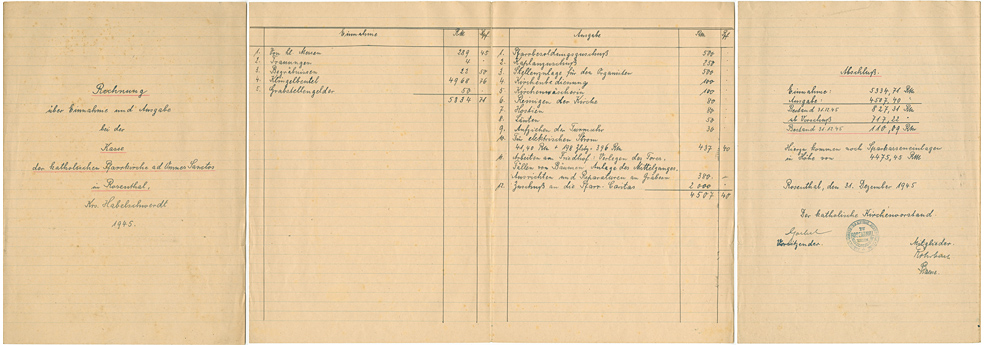 Rechnung
über Einnahme und Ausgabe
bei der
Kasse
der katholischen Pfarrkirche ad Omnes Sanctos
in Rosenthal,
Krs. Habelschwerdt
1945.
Einnahme
RM
Pf.
1. Von hl. Messen 289 45
2. Trauungen 4 -
3. Begräbnissen 22 50
4. Klingelbeutel 4968 76
5. Grabstellengelder 50
5334 71
Ausgabe
RM
Pf.
1. Pfarrbesoldungszuschuß 500
2. Kaplanzuschuß 250
3. Stellenzulage für den Organisten 500
4. Kirchenbedienung 100
5. Kirchenwäscherin 100
6. Reinigen der Kirche 80
7. Hostien 80
8. Läuten 50
9. Aufziehen der Turmuhr 30
10. Für elektrischen Strom
41,40 RM + 198 Zloty = 396 RM 437 40
11. Arbeiten am Friedhof: Verlegen des Tores.
Fällen von Bäumen, Anlage des Mittelganges.
Ausrichten und Reparaturen an Gräbern 380 -
12. Zuschuß an die Pfarr-Caritas 2000
4507 40
Abschluß.
Einnahme: 5334,71 RM
Ausgabe: 4507,40 "
Bestand 31.12.45 827,31 RM
ab Vorschuß 717,22 "
Bestand 31.12.45 110,09 RM
Hierzu kommen noch Sparkasseneinlagen
in Höhe von 4475,43 RM
Rosenthal, den 31. Dezember 1945
Der katholische Kirchenvorstand.
Vorsitzender.
Mitglieder.